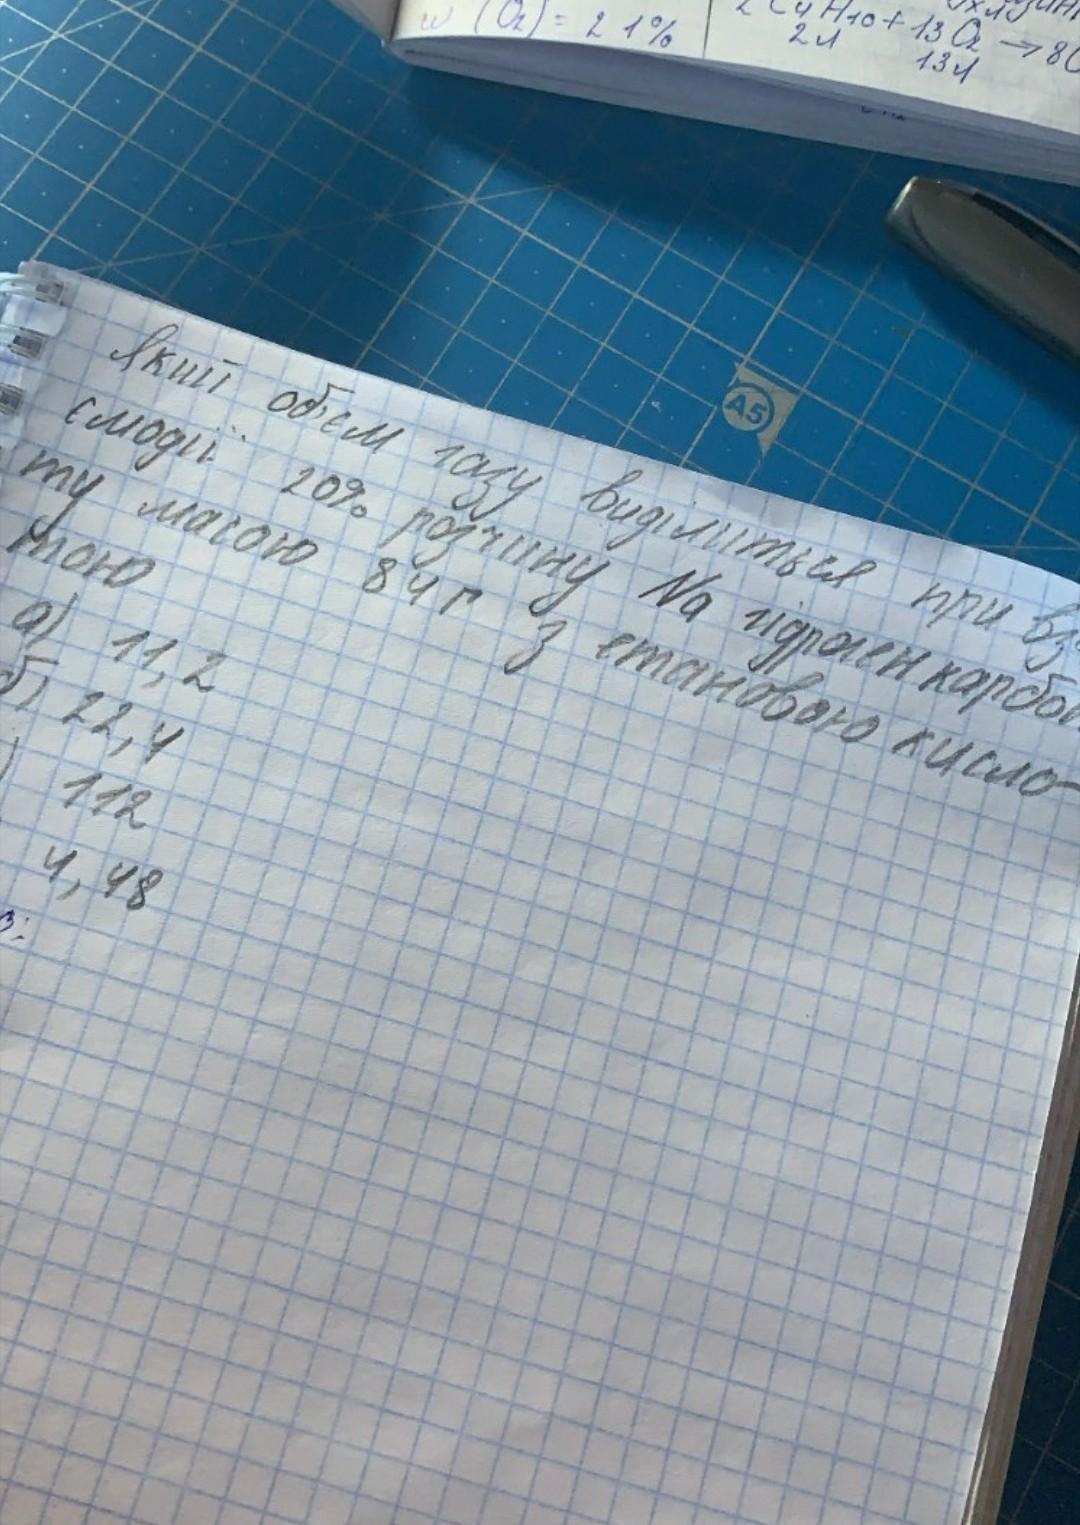 w (O₂) = 21%
2C₄H₁₀ + 13O₂ → 8C
2л
13л
A5
Який об'єм газу виділиться при вз
ємодії 20% розчину Na гідрогенкарбон
ту масою 84г з етановою кисло-
тою
а) 11,2
б) 22,4
) 112
4,48